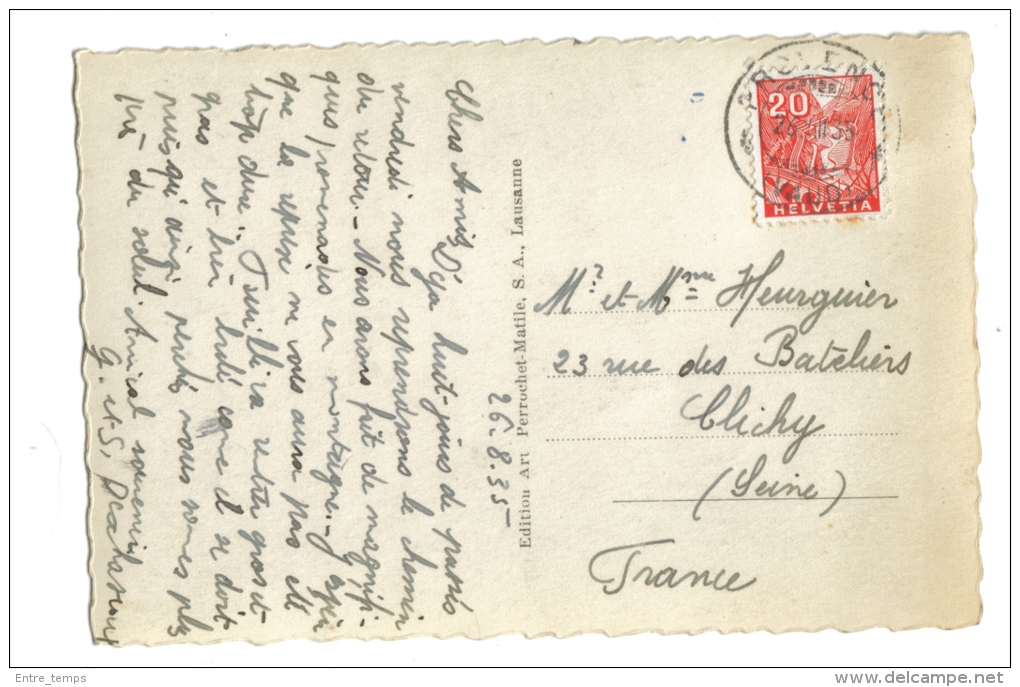 26.8.35
Chers Amis, Déjà huit-jours de passés
vendredi nous reprendrons le chemin
du retour. - Nous avons fait de magnifi-
ques promenades en montagne. - J'espère
que la reprise ne vous aura pas été
trop dure. Tranquille
gras et bien bruni comme il se doit
puisqu'ainsi nous sommes plus
près du soleil. Amical souvenir
G. et S.
Edition Art Perrochet-Matile, S. A., Lausanne
PROVENCE
VAUD
20
HELVETIA
Mr et Mme Heurguier
23 rue des Bateliers
Clichy
(Seine)
France
Entre_temps
delcampe.net